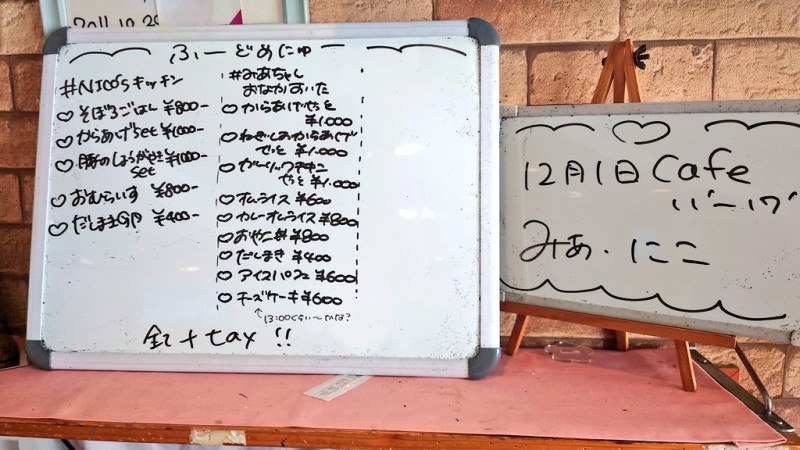 ふーどめにゅ
#NICO'sキッチン
♡そぼろごはん ¥800-
♡からあげset ¥1000-
♡豚のしょうがやき ¥1000-
set
♡おむらいす ¥800-
♡だしまき ¥400-
#みあちゃん
おなかすいた
♡からあげせっと
¥1.000
♡ねぎしおからあげ
せっと ¥1.000
♡ガーリックチキン
せっと ¥1.000
♡オムライス ¥600
♡カレーオムライス ¥800
♡おやこ丼 ¥800
♡だしまき ¥400
♡アイスパフェ ¥600
♡チーズケーキ ¥600
↑13:00ぐらい〜かな?
全て+tax !!
12月1日 Cafe
みあ・にこ